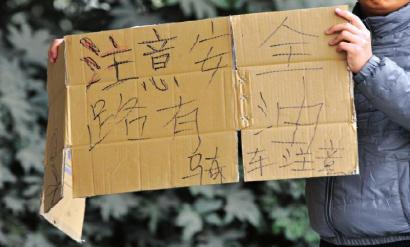 注意安全
路有油
车注意